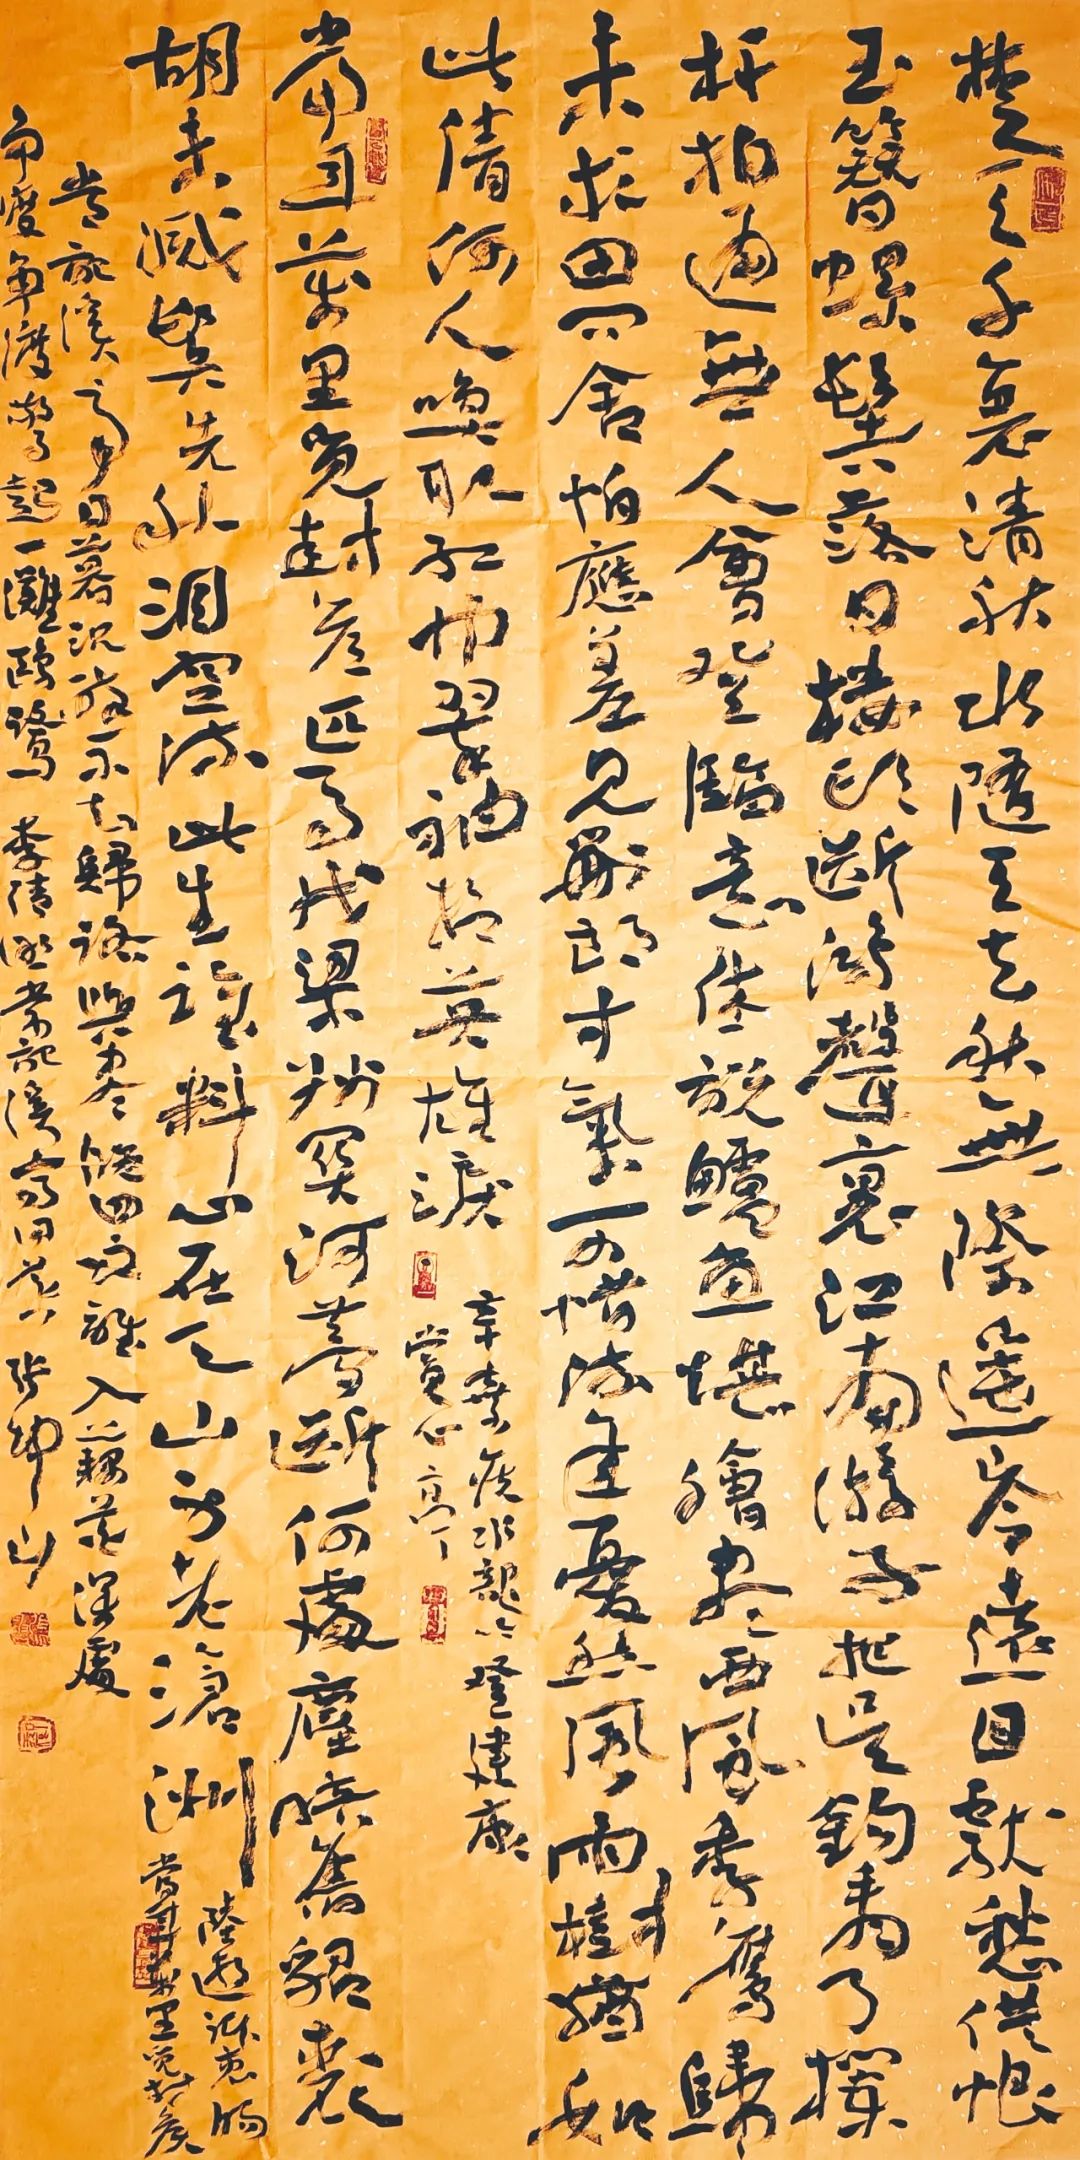 楚天千里清秋水隨天去秋無際遥岑遠目獻愁供恨
玉簪螺髻落日樓頭斷鴻聲裏江南游子把吳鈎看了欄
杆拍遍無人會登臨意休説鱸魚堪膾盡西風季鷹歸
未求田問舍怕應羞見劉郎才氣可惜流年憂愁風雨樹猶如
此倩何人喚取紅巾翠袖揾英雄淚
辛棄疾水龍吟登建康
賞心亭
當年萬里覓封侯匹馬戍梁州關河夢斷何處塵暗舊貂裘
胡未滅鬢先秋泪空流此生誰料心在天山身老滄洲
陸游訴衷腸
當年萬里覓封侯
常記溪亭日暮沉醉不知歸路興盡晚回舟誤入藕花深處
争渡争渡驚起一灘鷗鷺 李清照常記溪亭日暮 張坤山